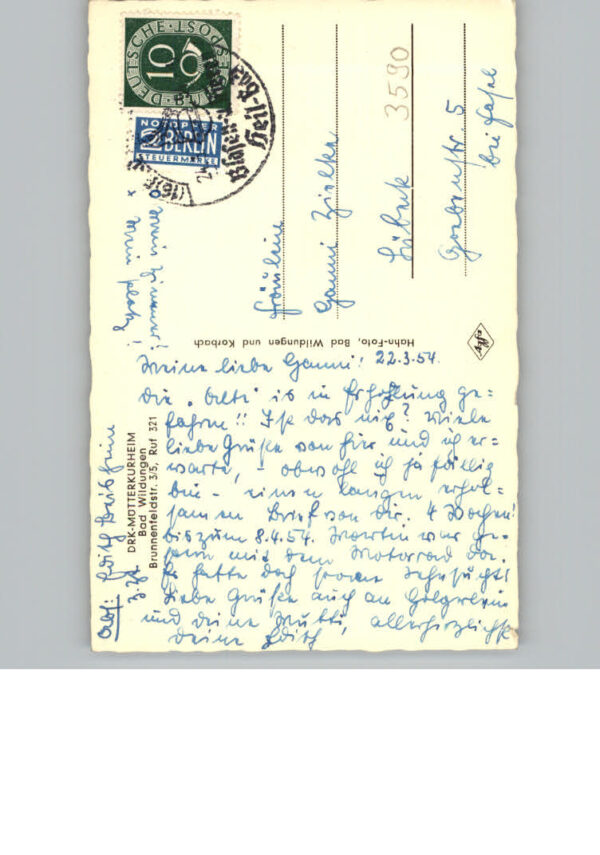 DEUTSCHE POST
10
NOTOPFER
2 BERLIN
STEUERMARKE
3590
Fräulein
Hanni Zielke
Lübeck
5
bei
Hahn-Foto, Bad Wildungen und Korbach
DRK-MÜTTERKURHEIM
Bad Wildungen
Brunnenfeldstr. 3/5, Ruf 321
Abs: Edith
z. Zt.
Meine liebe Hanni! 22.3.54.
Die "Olle" ist in Erholung ge=
fahren!! Ist das nix? Viele
liebe Grüße von hier und ich er=
warte, - obwohl ich ja fällig
bin - einen langen
samen Brief von Dir. 4 Wochen!
bis zum 8.4.54. Martin war ge=
stern mit dem Motorrad da.
Er hatte doch Sehnsucht!
Liebe Grüße auch an
und deine Mutti, allerherzlichst
Deine Edith